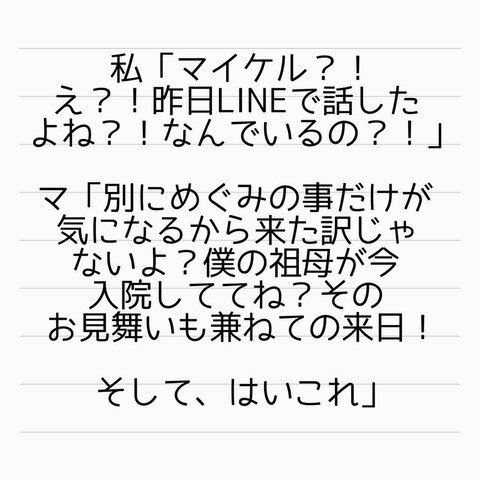 私「マイケル？！
え？！昨日LINEで話した
よね？！なんでいるの？！」
マ「別にめぐみの事だけが
気になるから来た訳じゃ
ないよ？僕の祖母が今
入院しててね？その
お見舞いも兼ねての来日！
そして、はいこれ」